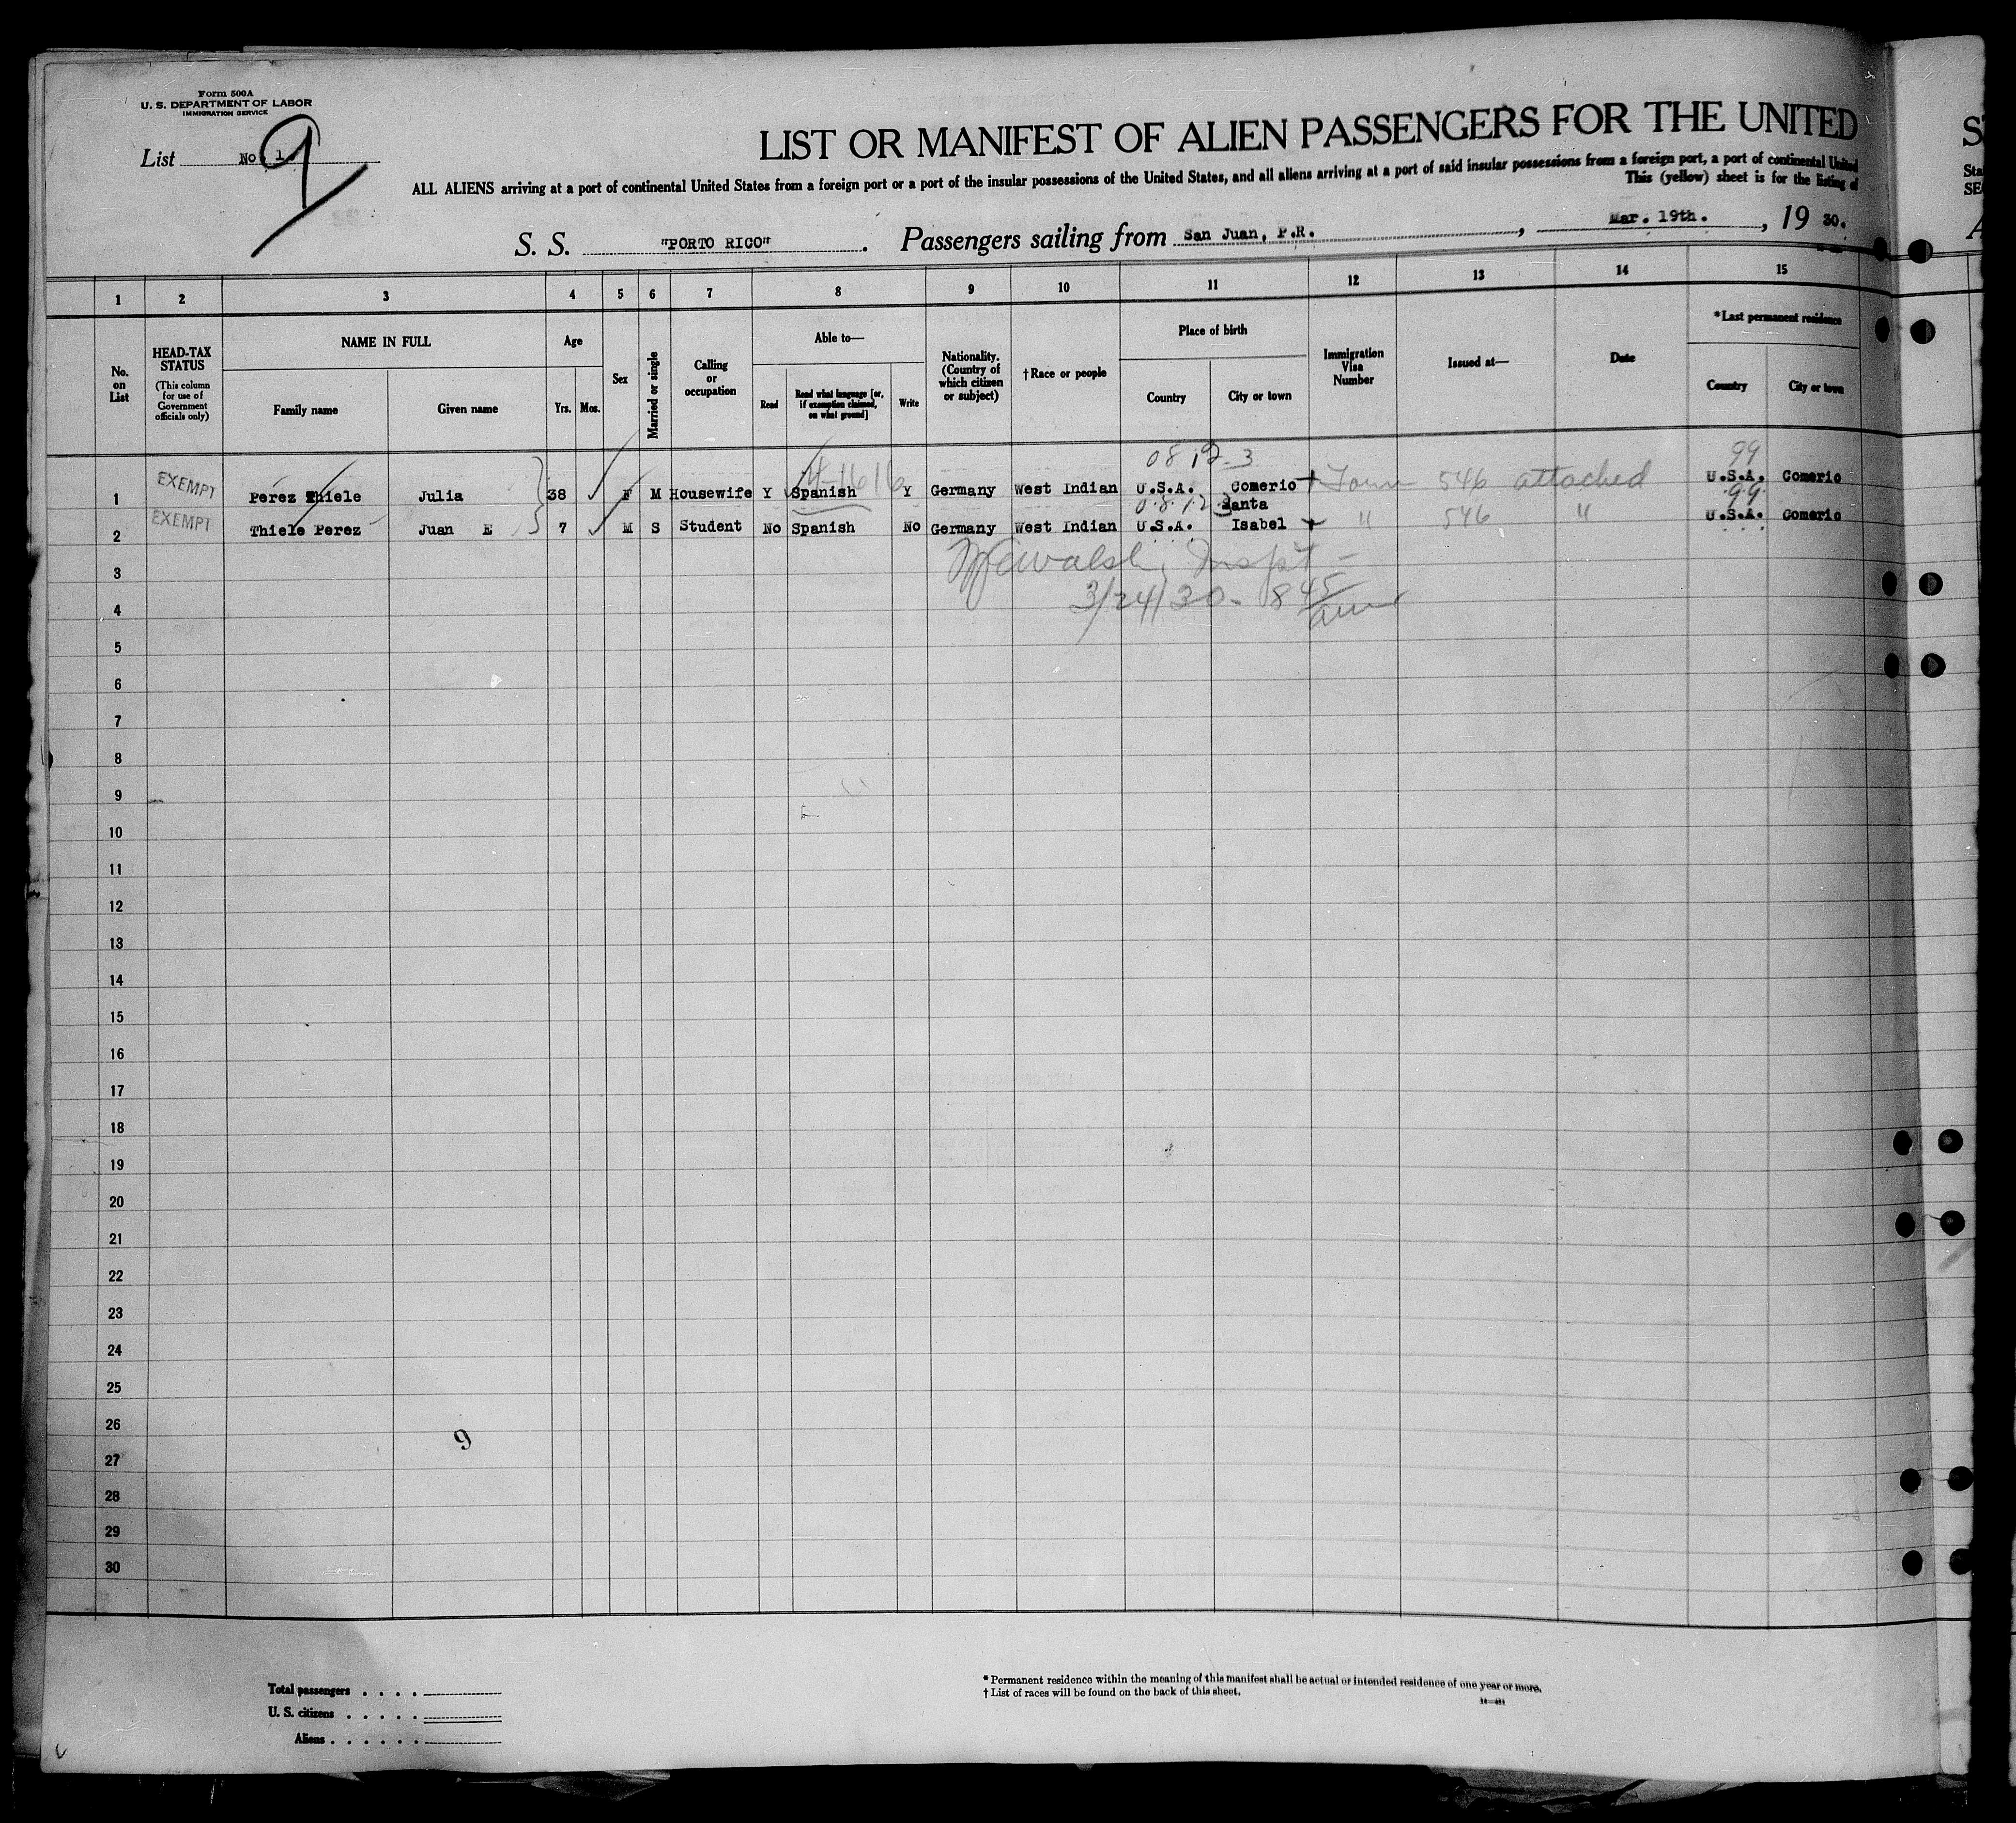 Form 500A
U. S. DEPARTMENT OF LABOR
IMMIGRATION SERVICE
List No 1
9
LIST OR MANIFEST OF ALIEN PASSENGERS FOR THE UNITED
ALL ALIENS arriving at a port of continental United States from a foreign port or a port of the insular possessions of the United States, and all aliens arriving at a port of said insular possessions from a foreign port, a port of continental United
This (yellow) sheet is for the listing of
S. S. "PORTO RICO". Passengers sailing from San Juan, P.R., Mar. 19th., 19 30.
1 2 3 4 5 6 7 8 9 10 11 12 13 14 15
No. on List
HEAD-TAX STATUS
(This column for use of Government officials only)
NAME IN FULL
Family name Given name
Age
Yrs. Mos.
Sex
Married or single
Calling or occupation
Able to—
Read Read what language [or, if exemption claimed, on what ground] Write
Nationality. (Country of which citizen or subject)
†Race or people
Place of birth
Country City or town
Immigration Visa Number
Issued at—
Date
*Last permanent residence
Country City or town
08 12 3 99
1 EXEMPT Perez Thiele Julia 38 F M Housewife Y Spanish Y Germany West Indian U.S.A. Comerio 546 attached U.S.A. Comerio
0.8.12.3 Santa 99
2 EXEMPT Thiele Perez Juan E 7 M S Student No Spanish No Germany West Indian U.S.A. Isabel " 546 " U.S.A. Comerio
3 Walsh, Inspt -
4 3/24/30 - 8 45/am
5
6
7
8
9
10
11
12
13
14
15
16
17
18
19
20
21
22
23
24
25
26
9
27
28
29
30
Total passengers . . . .
U. S. citizens . . . . .
Aliens . . . . . .
* Permanent residence within the meaning of this manifest shall be actual or intended residence of one year or more.
† List of races will be found on the back of this sheet.